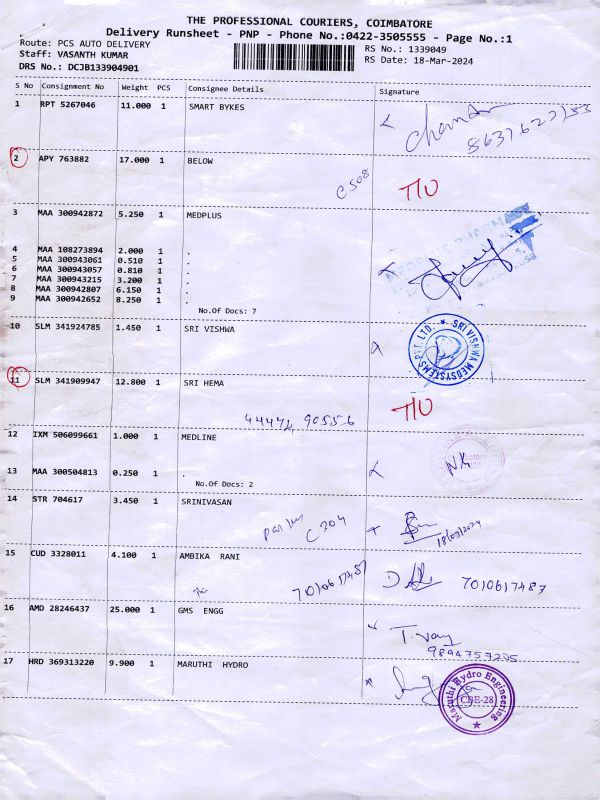 THE PROFESSIONAL COURIERS, COIMBATORE
Delivery Runsheet - PNP - Phone No.:0422-3505555 - Page No.:1
Route: PCS AUTO DELIVERY RS No.: 1339049
Staff: VASANTH KUMAR RS Date: 18-Mar-2024
DRS No.: DCJB133904901
S No Consignment No Weight PCS Consignee Details Signature
1 RPT 5267046 11.000 1 SMART BYKES
2 APY 763882 17.000 1 BELOW
C508 T/U
3 MAA 300942872 5.250 1 MEDPLUS
4 MAA 108273894 2.000 1 .
5 MAA 300943061 0.510 1 .
6 MAA 300943057 0.810 1 .
7 MAA 300943215 3.200 1 .
8 MAA 300942807 6.150 1 .
9 MAA 300942652 8.250 1 .
No.Of Docs: 7
10 SLM 341924785 1.450 1 SRI VISHWA
SRI VISHWA MEDSYSTEMS PVT. LTD.
11 SLM 341909947 12.800 1 SRI HEMA
T/U
12 IXM 506099661 1.000 1 MEDLINE
NK
13 MAA 300504813 0.250 1 .
No.Of Docs: 2
14 STR 704617 3.450 1 SRINIVASAN
C304
18/03/2024
15 CUD 3328011 4.100 1 AMBIKA RANI
7010617487 7010617487
16 AMD 28246437 25.000 1 GMS ENGG
9894757205
17 HRD 369313220 9.900 1 MARUTHI HYDRO
Maruthi Hydro Engineering
CBE-28